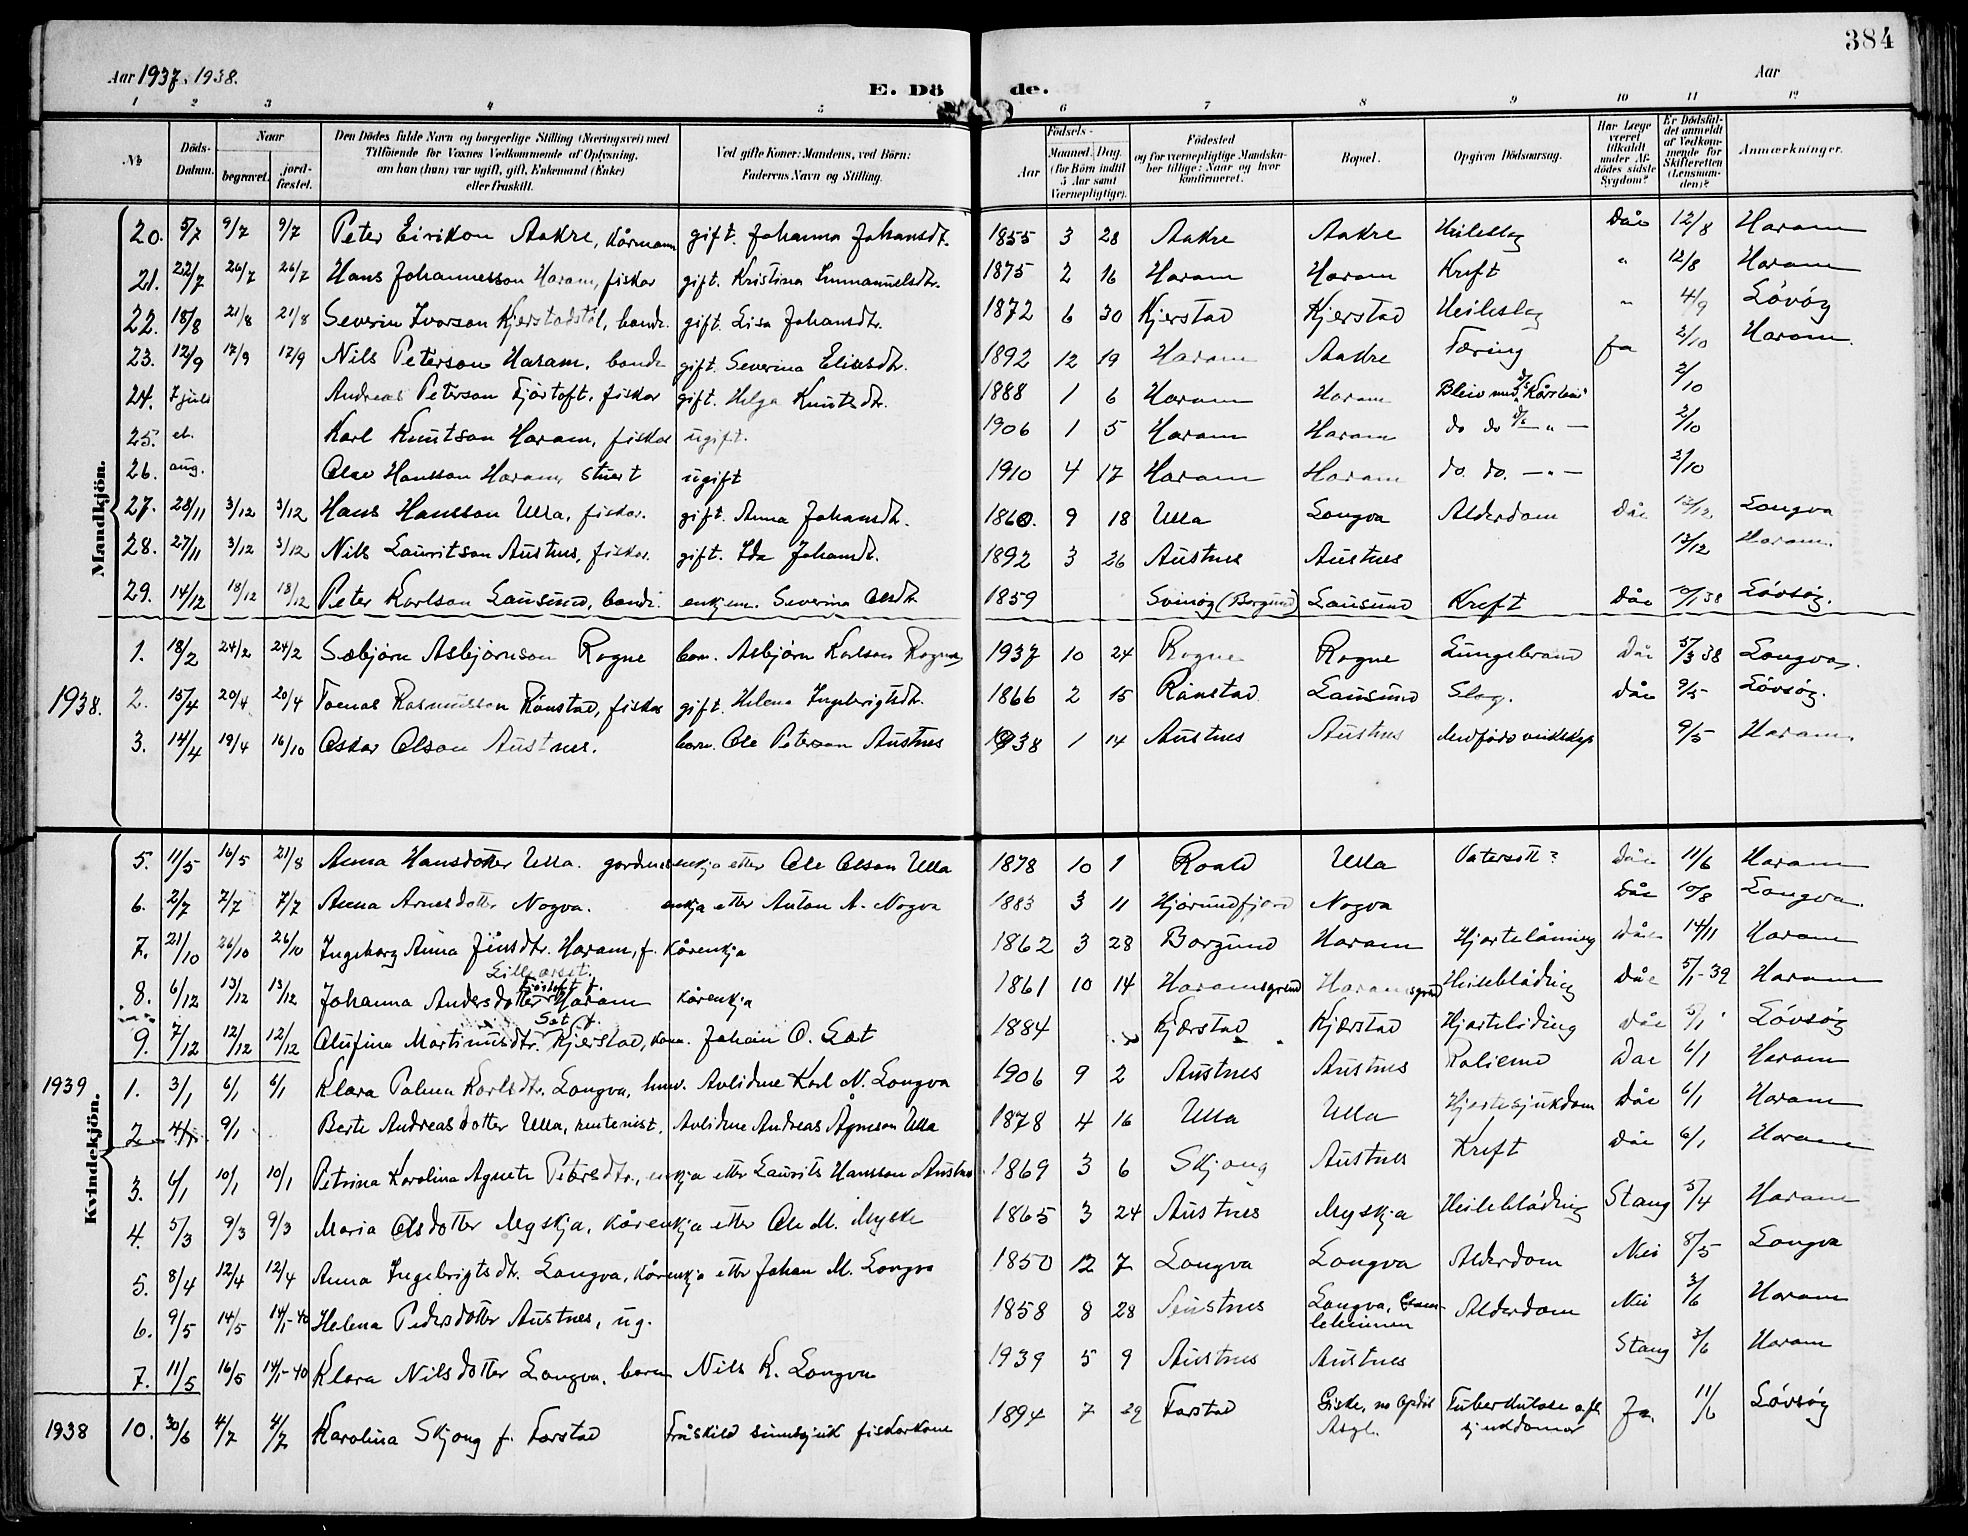 384
Aar 1937. 1938.
E. Dö de.
Aar
1 2 3 4 5 6 7 8 9 10 11 12
No
Døds-Datum.
Naar
begravet.
jord-fæstet.
Den Dödes fulde Navn og borgerlige Stilling (Næringsvei) med
Tilföiende for Voxnes Vedkommende af Oplysning,
om han (hun) var ugift, gift, Enkemand (Enke)
eller fraskilt.
Ved gifte Koner: Mandens, ved Börn:
Faderens Navn og Stilling.
Födsels-
Aar
Maaned. Dag.
(for Börn indtil
5 Aar samt
Værnepligtige).
Födested
og for værnepligtige Mandska-
ber tillige: Naar og hvor
konfirmeret.
Bopæl.
Opgiven Dödsaarsag.
Har Læge
været
tilkaldt
under Af-
dödes sidste
Sygdom?
Er Dödsfal-
det anmeldt
af Vedkom-
mende for
Skifteretten
(Lensman-
den)?
Anmærkninger.
Mandkjön.
20. 5/7 9/7 9/7 Peter Eirikson Aakre, kårmann gift. Johanna Johansdt. 1855 3 28 Aakre Aakre Heileslag Dåe 12/8 Haram
21. 22/7 26/7 26/7 Hans Johannesson Haram, fiskar gift. Kristina Immanuelsdtr. 1875 2 16 Haram Haram Kreft " 12/8 Haram
22. 18/8 21/8 21/8 Severin Ivarson Kjerstadstøl, bonde. gift. Lisa Johansdtr. 1872 6 30 Kjerstad Kjerstad Heileslag " 4/9 Løvsøy
23. 12/9 17/9 17/9 Nils Peterson Haram, bonde gift. Severina Eliasdtr. 1892 12 19 Haram Aakre Tæring Ja 2/10 Haram.
24. 7 juli Andreas Peterson Fjørtoft, fiskar gift. Helga Knutsdtr. 1888 1 6 Haram Haram Bleiv med d/s 2/10
25. el. Karl Knutson Haram, fiskar ugift. 1906 1 5 Haram Haram do do - " - 2/10
26. aug. Olav Hansson Haram, stuert ugift 1910 4 17 Haram Haram do. do. - " - 2/10
27. 28/11 3/12 3/12 Hans Hansson Ulla, fiskar. gift. Anna Johansdtr. 1860. 9 18 Ulla Longva Alderdom Dåe 12/12 Longva
28. 27/11 3/12 3/12 Nils Lauritson Austnes, fiskar. gift. Ida Johansdt. 1892 3 26 Austnes Austnes 13/12 Haram.
29. 14/12 18/12 18/12 Peter Karlson Lausund, bonde. enkjem. Severina Olsdtr 1859 Svinøy (Borgund) Lausund Kreft Dåe 38 Løvsøy.
1938.
1. 18/2 24/2 24/2 Sæbjørn Asbjørnson Rogne born. Asbjørn Karlson Rogne 1937 10 24 Rogne Rogne Lungebrand Dåe 5/3 38 Longva.
2. 15/4 20/4 20/4 Tomas Rasmusson Rånstad, fiskar gift. Helena Ingebrigtsdtr. 1866 2 15 Rånstad Lausund Slag. Dåe 9/5 Løvsøy.
3. 14/4 19/4 16/10 Oskar Olson Austnes. born. Ole Peterson Austnes 1938 1 14 Austnes Austnes Medfødd veikskap 9/5 Haram.
Kvindekjön.
5. 11/5 16/5 21/8 Anna Hansdotter Ulla. gardmannsenkja etter Ole Olson Ulla 1878 10 1 Roald Ulla Vatersott? Dåe 11/6 Haram
6. 2/7 7/7 7/7 Anna Arnesdotter Nogva. enkja etter Anton A. Nogva 1883 3 11 Hjørundfjord Nogva Dåe 10/8 Longva.
7. 21/10 26/10 26/10 Ingeborg Anna Jønsdtr. Haram, f. kårenkja 1862 3 28 Borgund Haram Hjartelåming Dåe 14/11 Haram
8. 6/12 13/12 13/12 Johanna Andersdotter Haram kårenkja 1861 10 14 Haramsgrend Haramsgrend Heileblåding Dåe 5/1-39 Haram
9. 7/12 12/12 12/12 Olufina Martinusdtr. Kjerstad, kona. Johan O. Sæt 1884 Kjerstad Kjerstad Hjartelåding Dåe 5/1 Løvsøy
1939
1. 3/1 6/1 6/1 Klara Palma Karlsdtr. Longva, husv. Avlidne Karl N. Longva 1906 9 2 Austnes Austnes Dåe 6/1 Haram
2. 4/1 9/1 Berte Andreasdotter Ulla, rentenist. Avlidne Andreas Ågneson Ulla 1878 4 16 Ulla Ulla Hjartesjukdom Dåe 6/1 Haram
3. 4/1 10/1 10/1 Petrina Karolina Agnete Petersdtr., enkja etter Laurits Hansson Austnes 1869 3 6 Skjong Austnes Kreft Dåe 6/1 Haram
4. 5/3 9/3 9/3 Maria Olsdotter Myskja, kårenkja etter Ole M. Myskja 1865 3 24 Austnes Myskja Heileblåding Stang 5/4 Haram
5. 8/4 12/4 12/4 Anna Ingebrigtsdtr. Longva, kårenkja etter Johan M. Longva 1850 12 7 Longva Longva Alderdom Nei 8/5 Longva
6. 9/5 14/5 14/1-40 Helena Pedersdotter Austnes, ug. 1858 8 28 Austnes Longva, Gamleheimen Alderdom Nei 3/6 Haram
7. 11/5 16/5 14/1-40 Klara Nilsdotter Longva, born Nils K. Longva 1939 5 9 Austnes Austnes Stang 3/6 Haram
1938 10. 30/6 4/7 4/7 Karolina Skjong f. Farstad Fråskild sinnssjuk fiskarkone 1894 7 29 Farstad Giske, no Opdøl Asyl. Tuberkulose o. fl. sjukdomar Ja. 11/6 Løvsøy